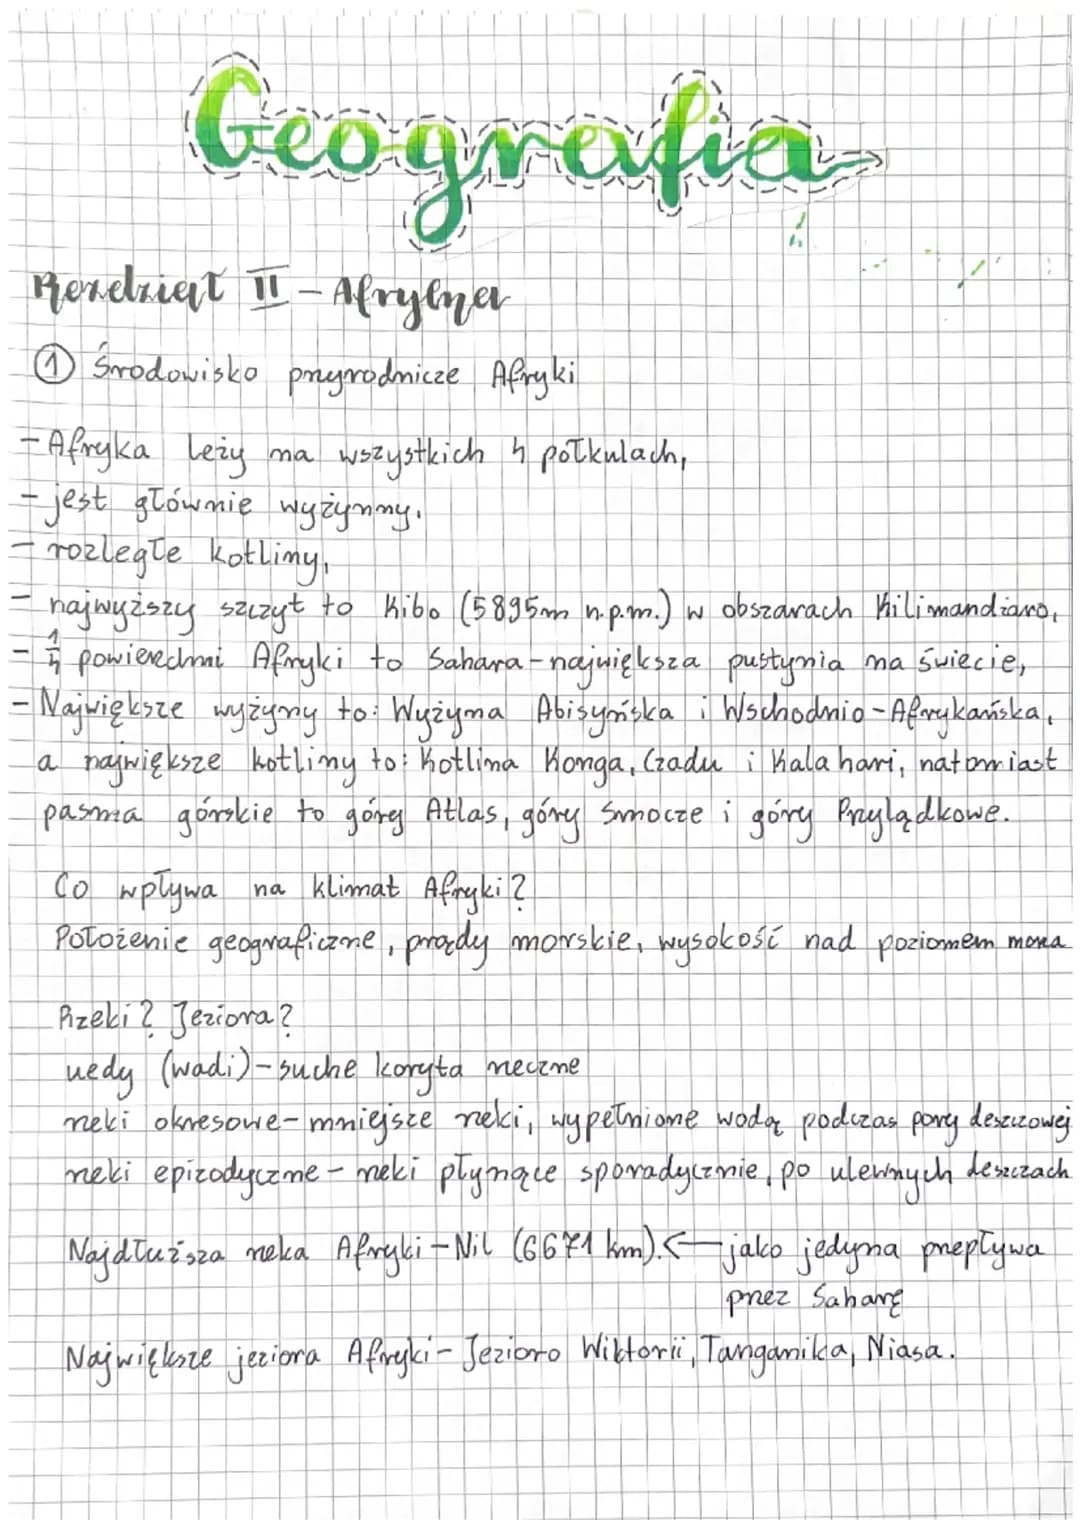 Geografia
Rozdział II - Afryka
① Środowisko przyrodnicze Afryki
- Afryka leży na wszystkich 4 półkulach,
- jest głównie wyżynny,
- rozległe kotliny,
- najwyższy szczyt to Kibo (5895m n.p.m.) w obszarach Kilimandżaro,
- 1/4 powierzchni Afryki to Sahara - największa pustynia na świecie,
- Największe wyżyny to: Wyżyna Abisyńska i Wschodnio-Afrykańska,
a największe kotliny to: Kotlina Konga, Czadu i Kalahari, natomiast
pasma górskie to góry Atlas, góry Smocze i góry Przylądkowe.
Co wpływa na klimat Afryki?
Położenie geograficzne, prądy morskie, wysokość nad poziomem morza
Rzeki? Jeziora?
uedy (wadi) - suche koryta rzeczne
rzeki okresowe - mniejsze rzeki, wypełnione wodą podczas pory deszczowej
rzeki epizodyczne - rzeki płynące sporadycznie, po ulewnych deszczach
Najdłuższa rzeka Afryki - Nil (6671 km). ← jako jedyna przepływa
przez Saharę
Największe jeziora Afryki - Jezioro Wiktorii, Tanganika, Niasa.